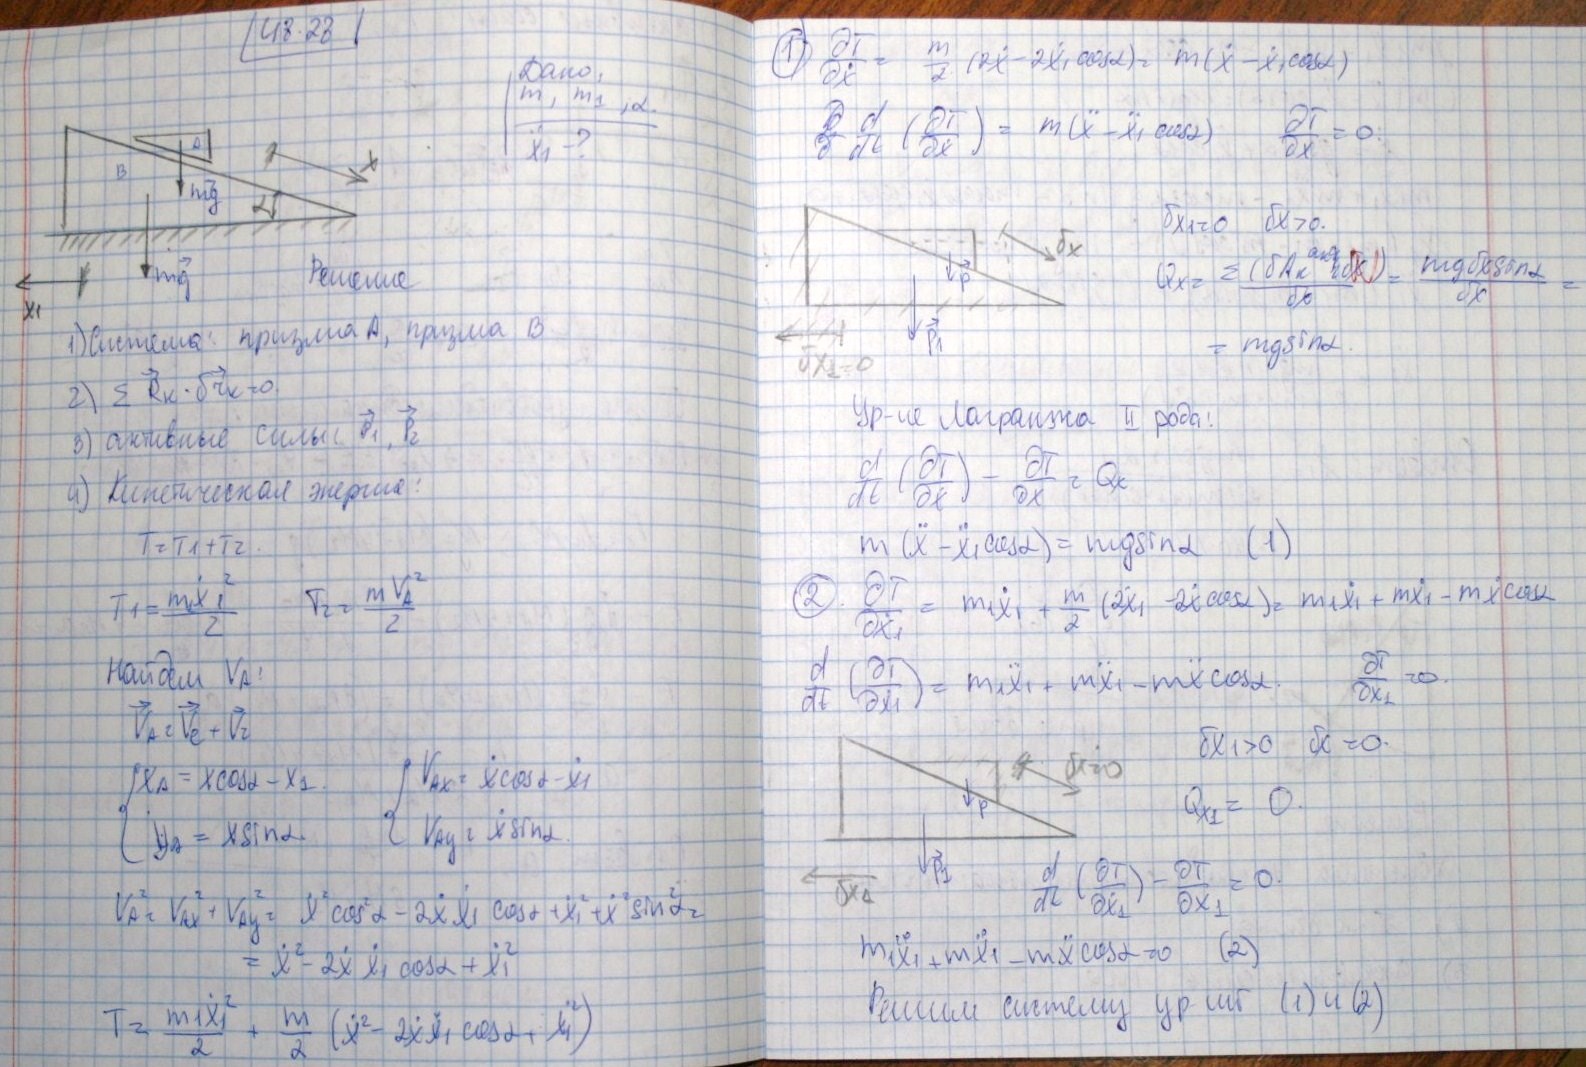 48.28
Дано:
m, m₁, α.
ẍ₁ - ?
A
B
x
mg⃗
α
mg⃗
x₁
Решение
1) Система: призма A, призма B
2) Σ R⃗ₖ · δr⃗ₖ = 0
3) активные силы: P⃗₁, P⃗₂
4) Кинетическая энергия:
T = T₁ + T₂.
T₁ = m₁ẋ₁²/2 T₂ = mV_A²/2
Найдем V_A:
V⃗_A = V⃗_e + V⃗_r
{ x_A = xcosα - x₁. { V_Ax = ẋcosα - ẋ₁
y_A = xsinα. V_Ay = ẋsinα.
V_A² = V_Ax² + V_Ay² = ẋ²cos²α - 2ẋẋ₁cosα + ẋ₁² + ẋ²sin²α =
= ẋ² - 2ẋẋ₁cosα + ẋ₁²
T = m₁ẋ₁²/2 + m/2 (ẋ² - 2ẋẋ₁cosα + ẋ₁²)
① ∂T/∂ẋ = m/2 (2ẋ - 2ẋ₁cosα) = m(ẋ - ẋ₁cosα)
d/dt (∂T/∂ẋ) = m(ẍ - ẍ₁cosα) ∂T/∂x = 0.
δx₁ = 0 δx > 0.
δx
P⃗
P⃗₁
δx₂ = 0
Qₓ = Σ(δAₖ)/δx = mgδxsinα/δx =
= mgsinα.
Ур-ие Лагранжа II рода:
d/dt (∂T/∂ẋ) - ∂T/∂x = Qₓ
m(ẍ - ẍ₁cosα) = mgsinα (1)
②. ∂T/∂ẋ₁ = m₁ẋ₁ + m/2 (2ẋ₁ - 2ẋcosα) = m₁ẋ₁ + mẋ₁ - mẋcosα
d/dt (∂T/∂ẋ₁) = m₁ẍ₁ + mẍ₁ - mẍcosα. ∂T/∂x₁ = 0.
δx₁ > 0 δx = 0.
δx = 0
P
P⃗₁
δx₁
Qₓ₁ = 0.
d/dt (∂T/∂ẋ₁) - ∂T/∂x₁ = 0.
m₁ẍ₁ + mẍ₁ - mẍcosα = 0 (2)
Решим систему ур-ий (1) и (2)